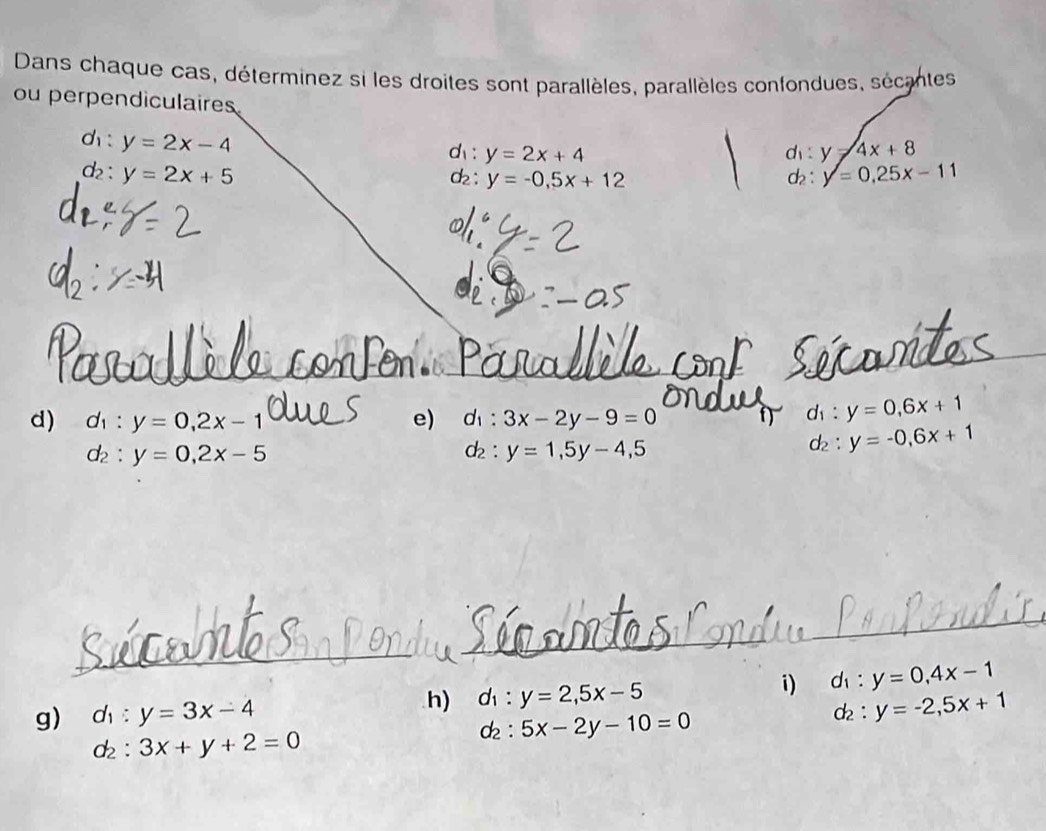 Dans chaque cas, déterminez si les droites sont parallèles, parallèles confondues, sécantes
ou perpendiculaires.
d₁ : y = 2x − 4
d₂ : y = 2x + 5
d₁ : y = 2x + 4
d₂ : y = -0,5x + 12
d₁ : y = 4x + 8
d₂ : y = 0,25x − 11
y = 2
d₂ :
y = 2
= -0.5
Parallèle confon.
dues
Parallèle conf
ondus
Sécantes
d) d₁ : y = 0,2x − 1
d₂ : y = 0,2x − 5
e) d₁ : 3x − 2y − 9 = 0
d₂ : y = 1,5y − 4,5
d₁ : y = 0,6x + 1
d₂ : y = -0,6x + 1
Sécantes
Sécantes
g) d₁ : y = 3x − 4
d₂ : 3x + y + 2 = 0
h) d₁ : y = 2,5x − 5
d₂ : 5x − 2y − 10 = 0
i) d₁ : y = 0,4x − 1
d₂ : y = -2,5x + 1